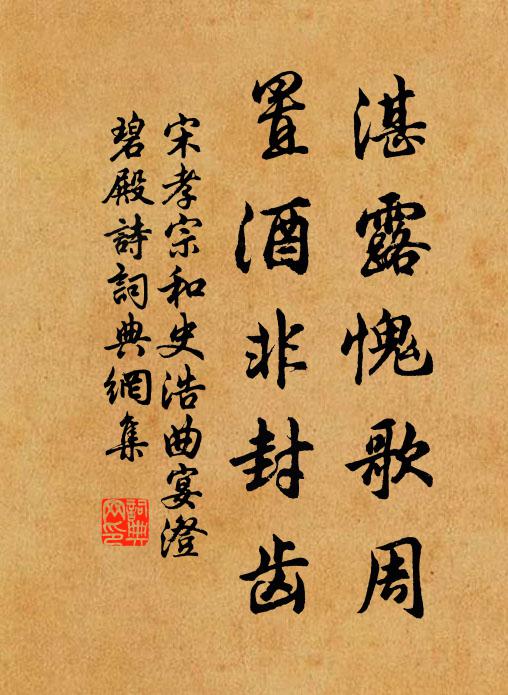 湛露愧歌周
置酒非封齿
宋孝宗和史浩曲宴澄
碧殿詩詞典網集
詞典網印